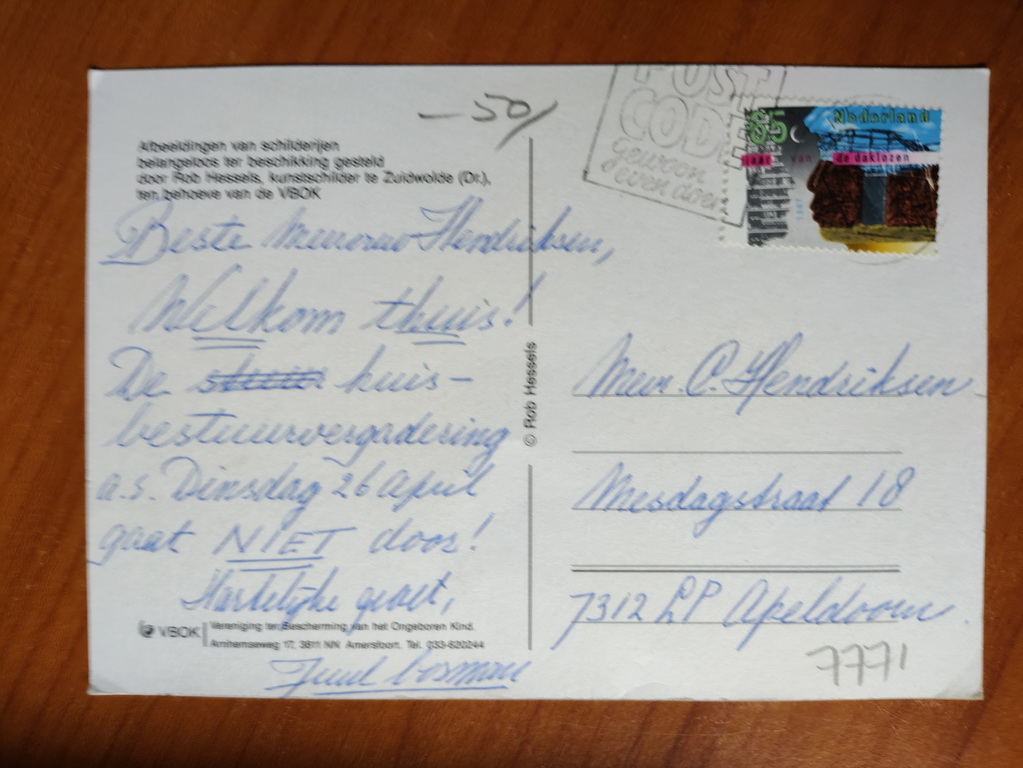 — 50/
Afbeeldingen van schilderijen
belangeloos ter beschikking gesteld
door Rob Hessels, kunstschilder te Zuidwolde (Dr.),
ten behoeve van de VBOK
POST
CODE
gewoon
even doen
85
Nederland
jaar van de daklozen
1987
Beste Mevrouw Hendriksen,
Welkom thuis!
De huis-
bestuursvergadering
a.s. Dinsdag 26 April
gaat NIET door!
Hartelijke groet,
VBOK
Vereniging ter Bescherming van het Ongeboren Kind.
Arnhemseweg 17, 3811 NN Amersfoort. Tel. 033-620244
Juul Cosman
© Rob Hessels
Mevr. C. Hendriksen
Mesdagstraat 18
7312 LP Apeldoorn
7771